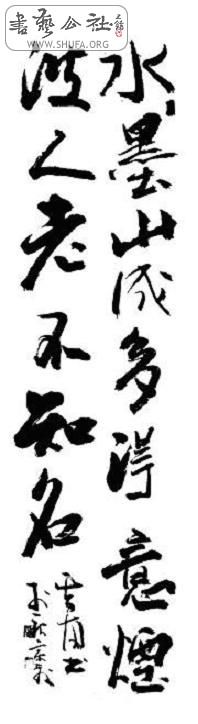 書藝公社
WWW.SHUFA.ORG
水墨山成多得意煙
波人老不知名